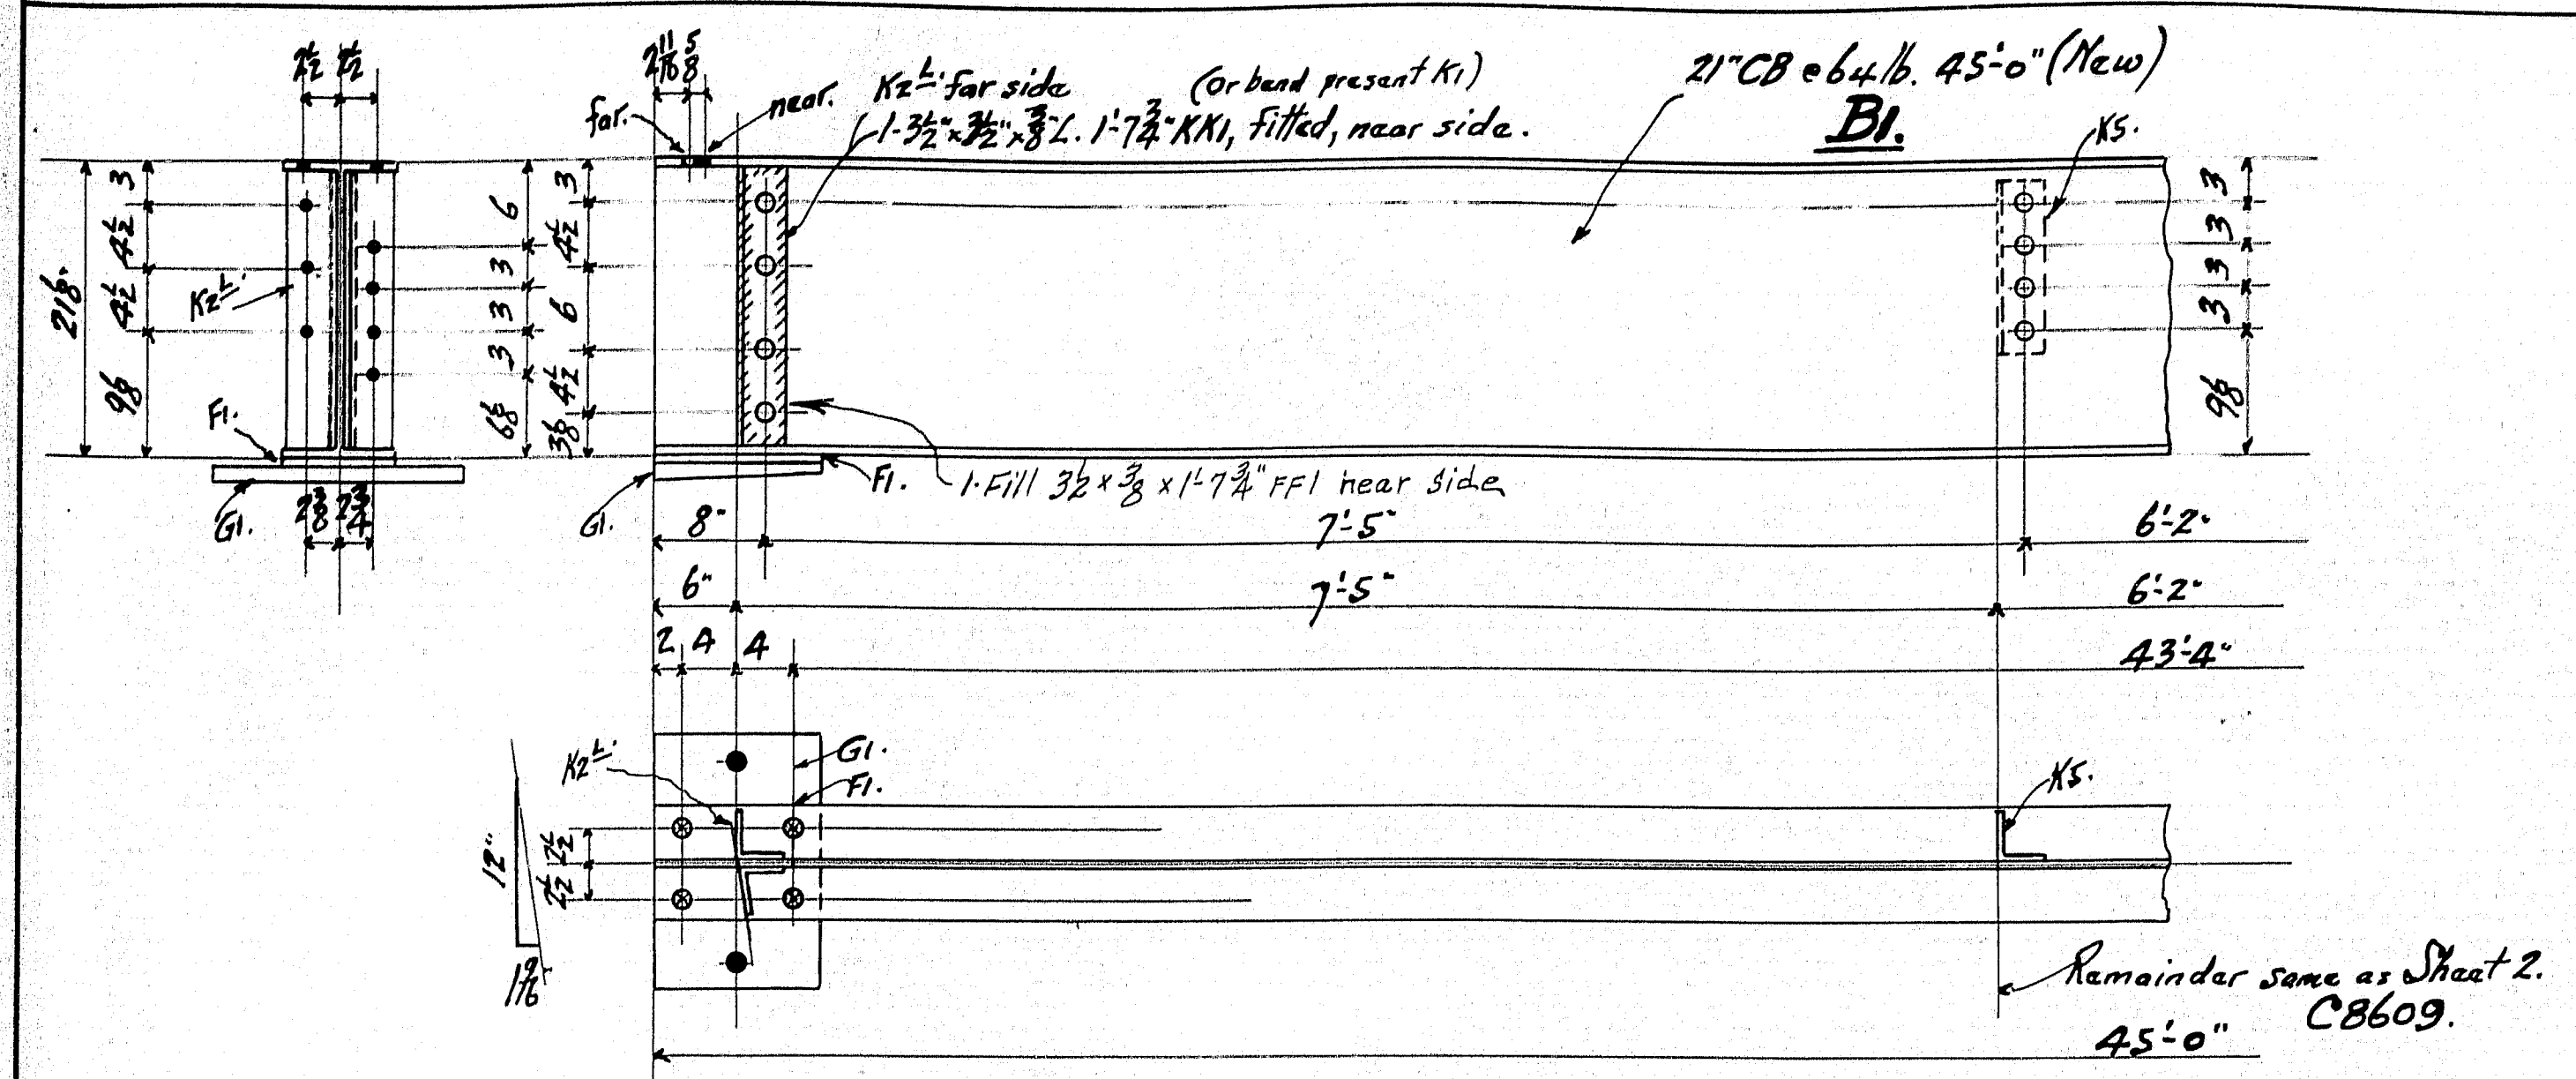 2½ 2½
2 11/16 5/8
far.
near.
K2ᴸ· far side (or bend present K1)
1-3½" x 3½" x ⅜" L. 1'-7¾" KK1, fitted, near side.
21" CB @ 64 lb. 45'-0" (New)
B1.
K5.
21⅛"
3
4½
4½
9⅛
K2ᴸ·
F1.
G1.
2⅜ 2¾
6
3
3
3
6⅛
3
4½
6
4½
3⅛
3
3
3
3
9⅛
G1.
F1.
1-Fill 3½ x ⅜ x 1'-7¾" FF1 near side
8" 7'-5" 6'-2"
6" 7'-5" 6'-2"
2 4 4 43'-4"
K2ᴸ·
G1.
F1.
K5.
12"
2½
2½
1 9/16
Remainder same as Sheet 2.
C8609.
45'-0"